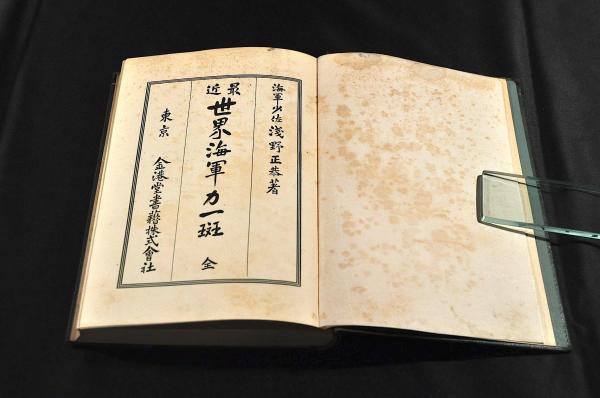 海軍少佐 淺野正恭著
最近
世界海軍力一斑 全
東京 金港堂書籍株式會社